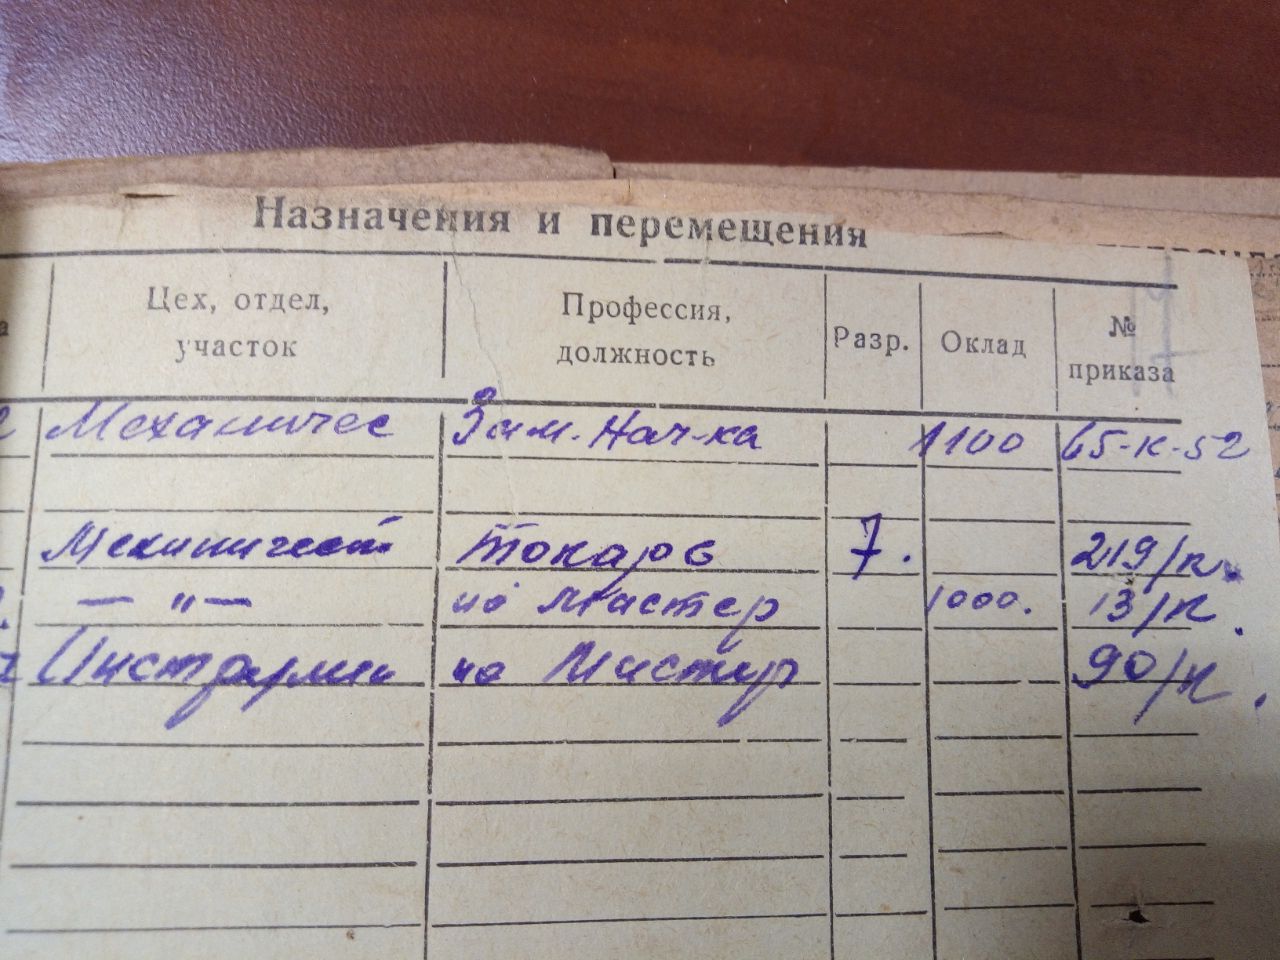 Назначения и перемещения
Цех, отдел, участок Профессия, должность Разр. Оклад № приказа
Механичес Зам. Нач-ка 1100 65-к-52
Механичест Токарь 7. 219/к.
— " — ио Мастер 1000. 13/к.
ио Мастер 90/к.